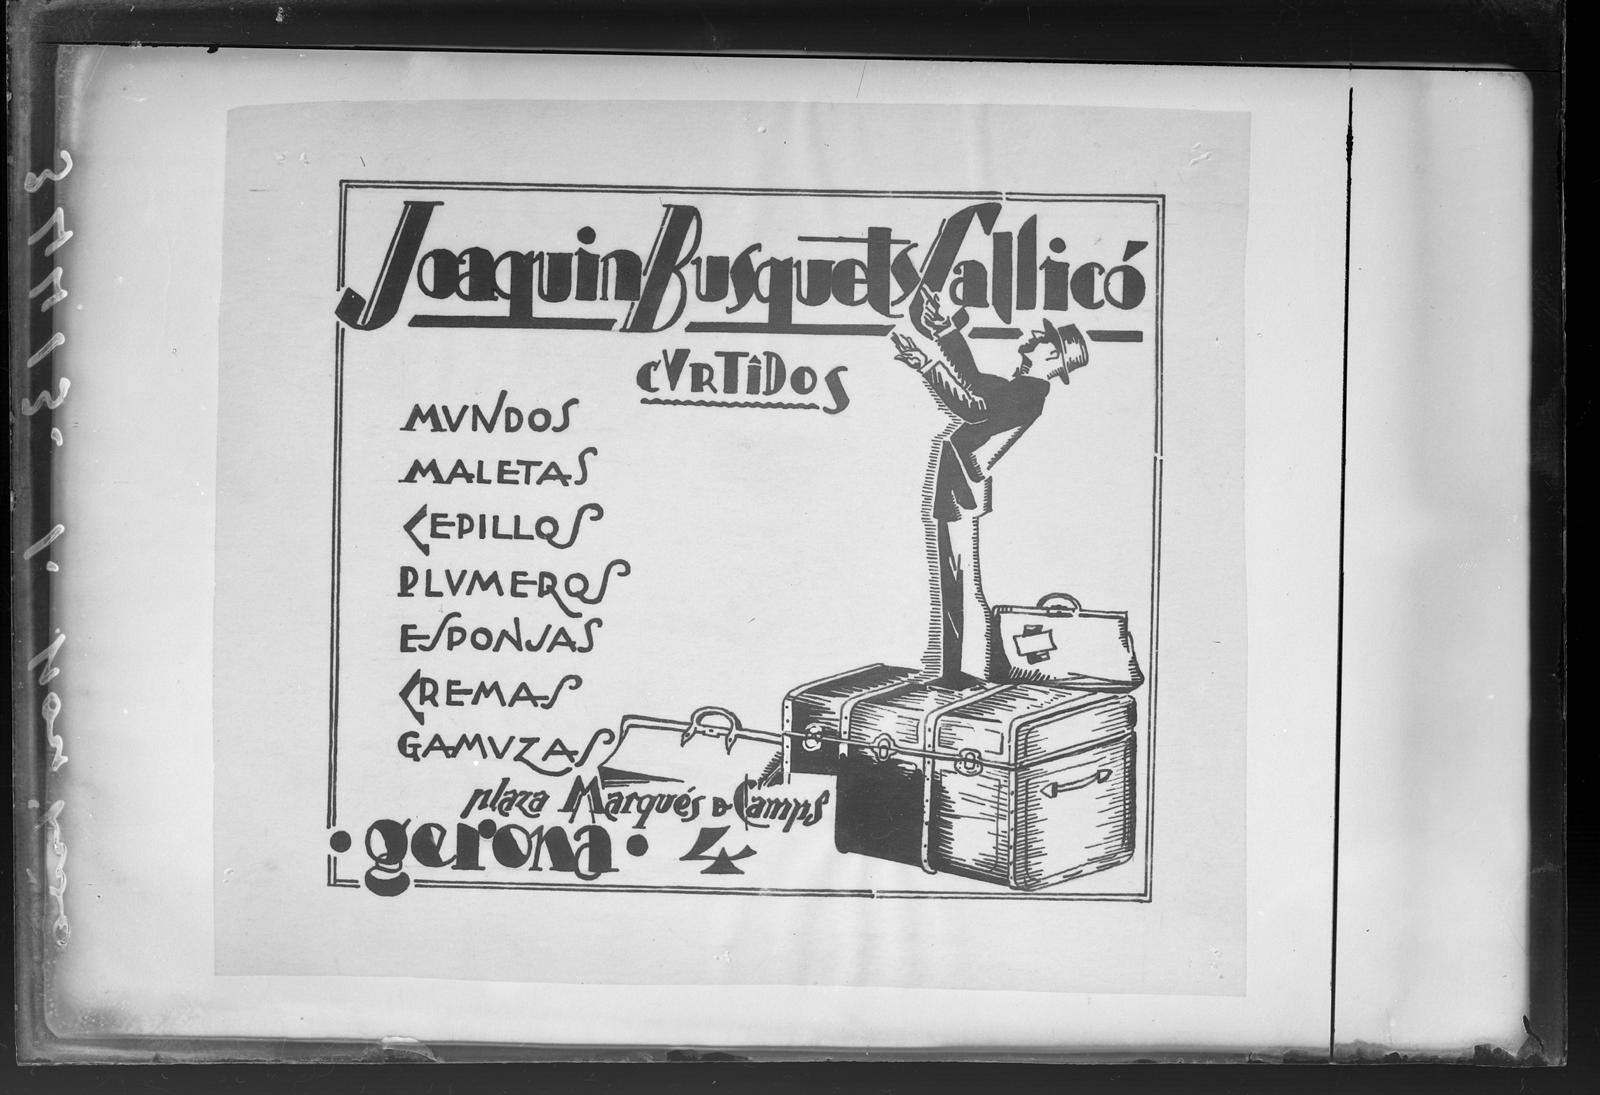 Joaquin Busquets Callicó
CVRTIDOS
MVNDOS
MALETAS
CEPILLOS
PLVMEROS
ESPONJAS
CREMAS
GAMVZAS
plaza Marqués D Camps
• gerona • 4